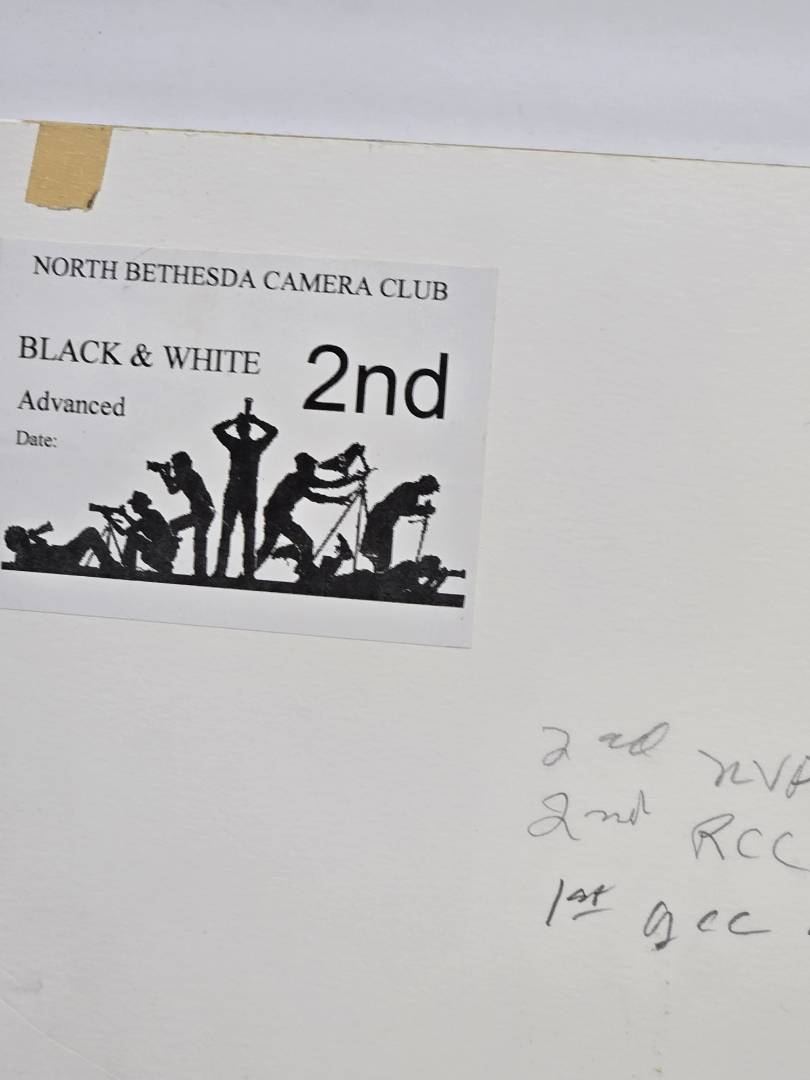 NORTH BETHESDA CAMERA CLUB
BLACK & WHITE
2nd
Advanced
Date:
2nd
2nd RCC
1st